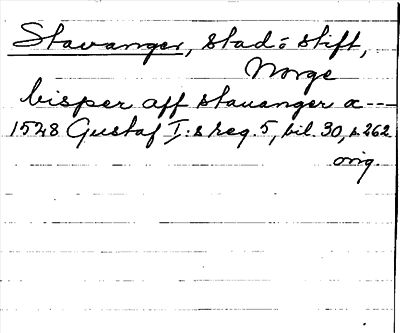 Stavanger, stad o stift,
Norge
bisper aff stauanger a ---
1528 Gustaf I:s reg. 5, bil. 30, s 262
orig.